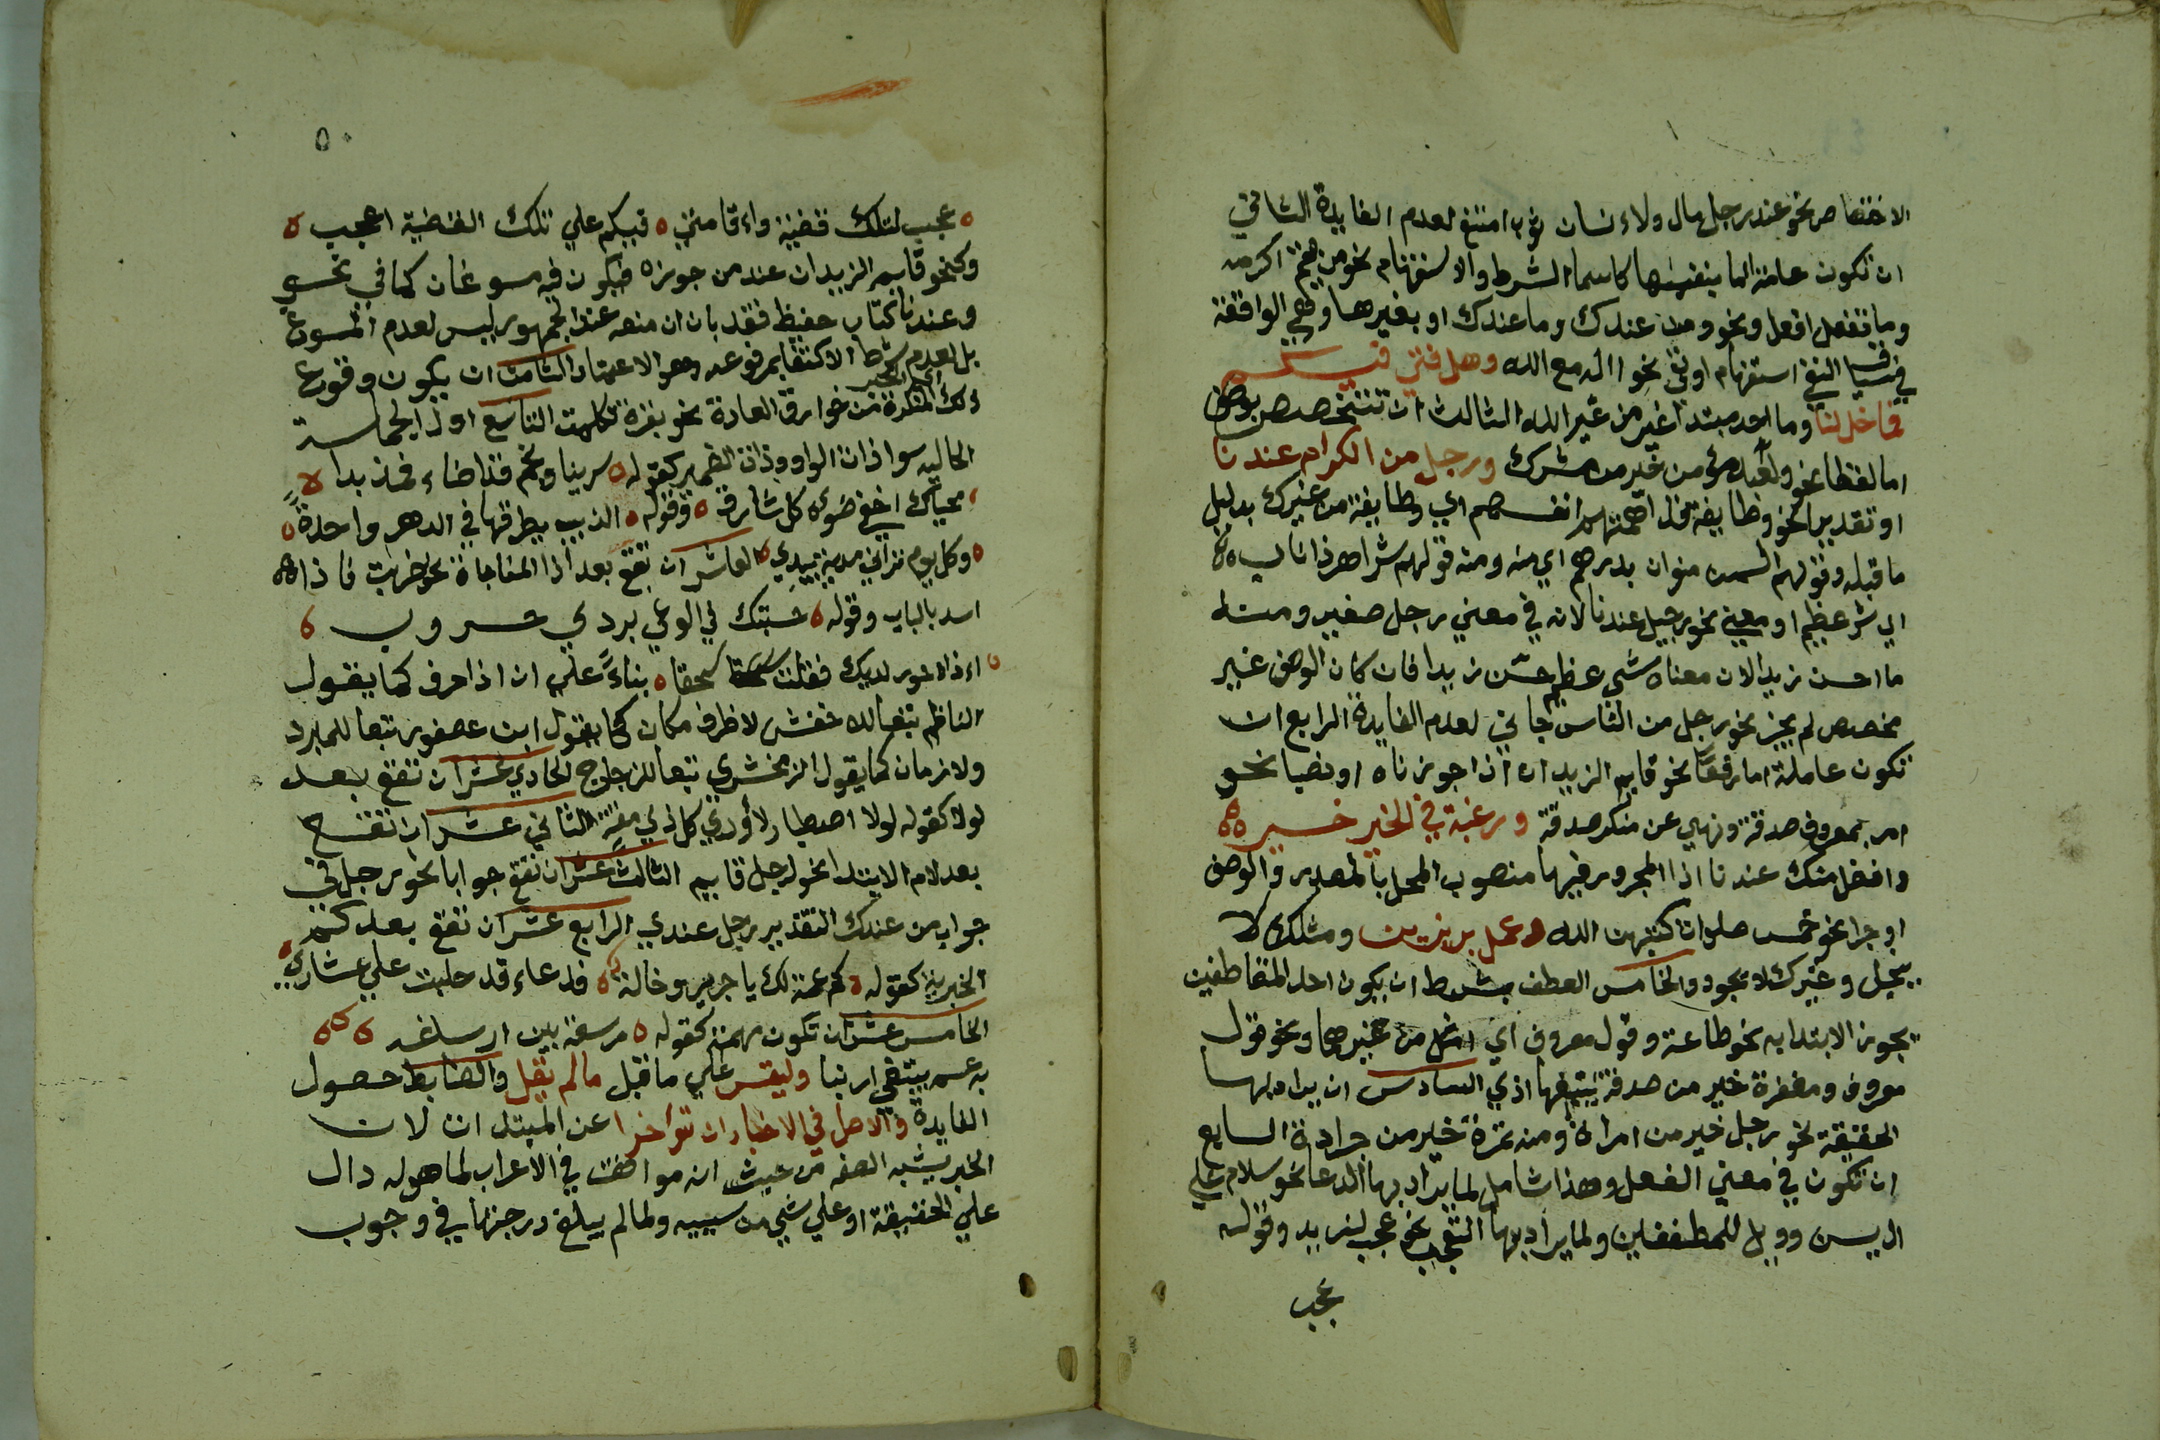 الاختصاص نحو عند رجل مال ولانسان ثوب امتنع لعدم الفايدة الثاني
ان تكون عامة اما بنفسها كاسما الشرط والاستفهام نحو من يقم اكرمه
وما تفعل افعل ونحو من عندك وما عندك او بغيرها وهي الواقعة
في سياق النفي استفهام او نفي نحو االه مع الله وهل فتي فيكم
فما خل لنا وما احد مبتدا اغير من غير الله الثالث ان تتخصص بوصف
اما لفظا نحو ولعبد مومن خير من مشرك ورجل من الكرام عندنا
او تقديرا نحو وطايفة قد اهمتهم انفسهم اي وطايفة من غيرك بدليل
ما قبله وقولهم السمن منوان بدرهم اي منه ومنه قولهم شر اهر ذا ناب
اي شر عظيم او معني نحو رجيل عندنا لانه في معني رجل صغير ومنه
ما احسن زيدا لان معناه شي عظيم حسن زيدا فان كان الوصف غير
مخصص لم يجز نحو رجل من الناس جاني لعدم الفايدة الرابع ان
تكون عاملة اما رفعا نحو قايم الزيدان اذا جوزناه او نصبا نحو
امر بمعروف صدقة ونهي عن منكر صدقة ورغبة في الخير خير
وافضل منك عندنا اذ المجرور فيها منصوب المحل بالمصدر والوصف
او جرا نحو خمس صلوات كتبهن الله وعمل بر يزين ومثلك لا
يبخل وغيرك لا يجود والخامس العطف بشرط ان يكون احد المتعاطفين
يجوز الابتدا به نحو طاعة وقول معروف اي امثل من غيرهما ونحو قول
معروف ومغفرة خير من صدقة يتبعها اذي السادس ان يراد بها
الحقيقة نحو رجل خير من امراة ومنه تمرة خير من جرادة السابع
ان تكون في معني الفعل وهذا شامل لما يراد بها الدعا نحو سلام علي
ال يسن وويل للمطففين ولما يراد بها التعجب نحو عجب لزيد وقوله
عجب
٥٠
عجب لتلك قضية واقامتي فيكم علي تلك القضية اعجب
وكنحو قايم الزيدان عند من جوزه فيكون فيه مسوغان كما في نحو
وعندنا كتاب حفيظ فقد بان ان منعه عند الجمهور ليس لعدم المسوغ
بل لعدم شرط الاكتفا بمرفوعه وهو الاعتماد الثامن ان يكون وقوع
اي الخبر
ذلك للنكرة من خوارق العادة نحو بقرة تكلمت التاسع اول الجملة
الحاليه سوا ذات الواو وذات الضمير كقوله سرينا ونجم قد اضاء فمذ بدا
محياك اخفي ضوءه كل شارق وقوله الذيب يطرقها في الدهر واحدة
وكل يوم تراني مدية بيدي العاشر ان تقع بعد اذا المفاجاة نحو خرجت فاذا
اسد بالباب وقوله حسبتك في الوغي بردي حروب
اذا خور لديك فقلت سحقا بناء علي ان اذا حرف كما يقول
الناظم تبعا للاخفش لا ظرف مكان كما يقول ابن عصفور تبعا للمبرد
ولا زمان كما يقول الزمخشري تبعا للزجاج الحادي عشر ان تقع بعد
لولا كقوله لولا اصطبار لاودي كل ذي مقة الثاني عشر ان تقع
بعد لام الابتدا نحو لرجل قايم الثالث عشر ان تقع جوابا نحو رجل في
جواب من عندك التقدير رجل عندي الرابع عشر ان تقع بعد كم
الخبرية كقوله كم عمة لك يا جرير وخالة فدعاء قد حلبت علي عشاري
الخامس عشر ان تكون مبهمة كقوله مرسعة بين ارساغه
به عسم يبتغي ارنبا وليقس علي ما قيل ما لم يقل والضابط حصول
الفايدة والاصل في الاخبار ان توخرا عن المبتدات لان
الخبر يشبه الصفه من حيث انه موافق في الاعراب لما هو له دال
علي الحقيقة او علي شي من سببيه ولما لم يبلغ درجتها في وجوب